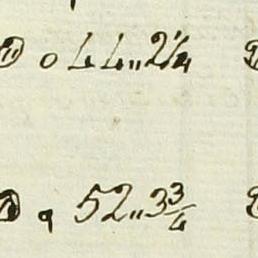 o 44„ 2¼
q 52„ 3¾